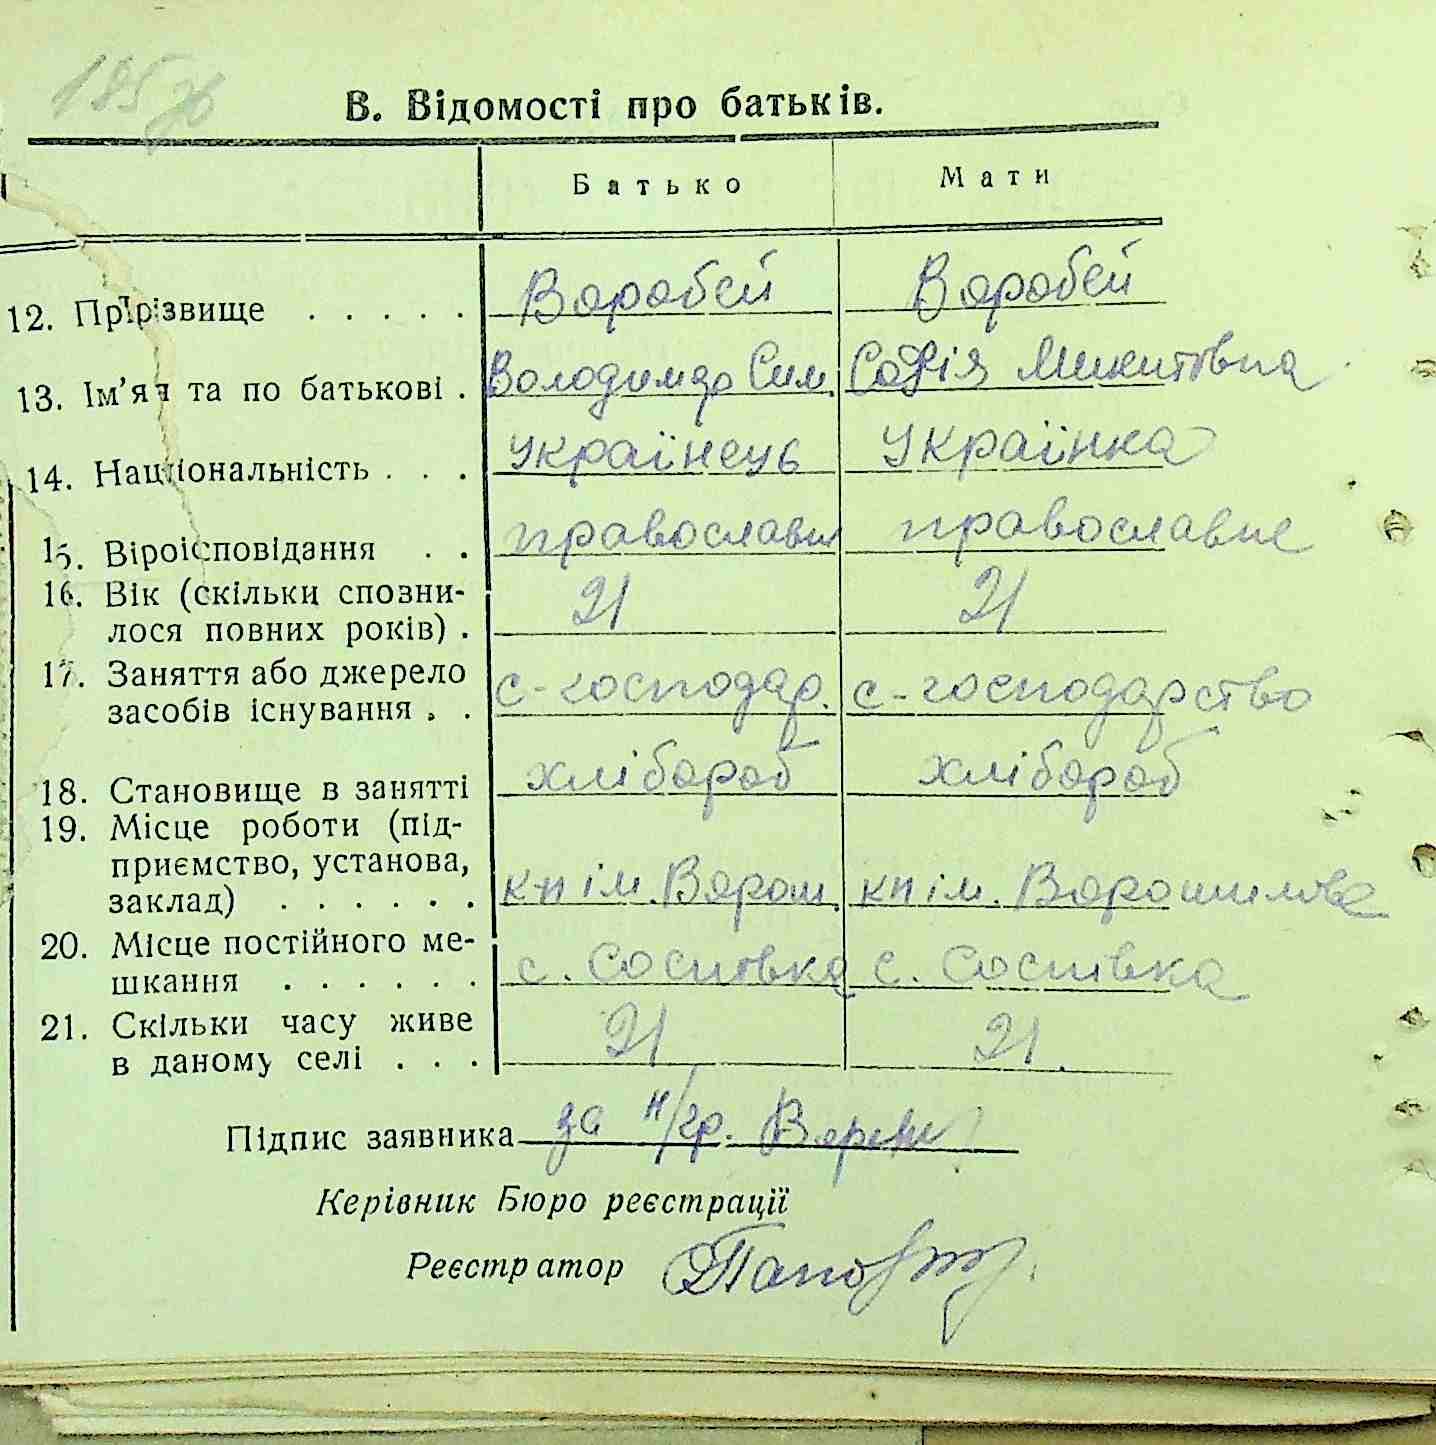 185зв
В. Відомості про батьків.
Батько Мати
12. Прізвище . . . . . Воробей Воробей
13. Ім'я та по батькові . Володимир Сим. Софія Микитовна
14. Національність . . . Українець Українка
15. Віроісповідання . . православн православне
16. Вік (скільки сповни-
лося повних років) . 21 21
17. Заняття або джерело
засобів існування . . с-господар. с-господарство
18. Становище в занятті хлібороб хлібороб
19. Місце роботи (під-
приємство, установа,
заклад) . . . . . . кп ім. Ворош. кп ім. Ворошилова
20. Місце постійного ме-
шкання . . . . . . с. Соснівка с. Соснівка
21. Скільки часу живе
в даному селі . . . 21 21.
Підпис заявника за н/гр.
Керівник Бюро реєстрації
Реєстратор